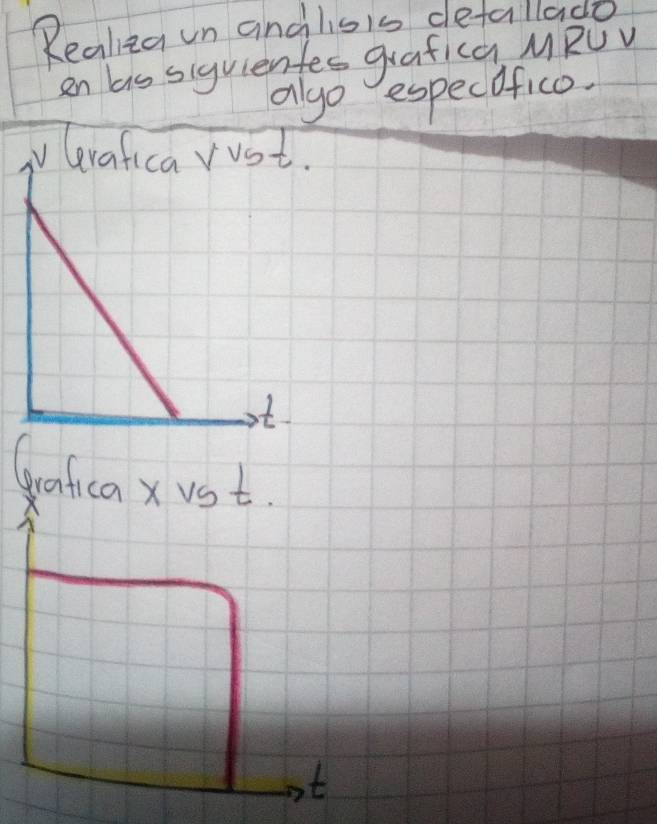 Realiza un análisis detallado
en las siguientes grafica, MRUV
algo especifico.
v Grafica v vs t.
t
Grafica x vs t.
x
t